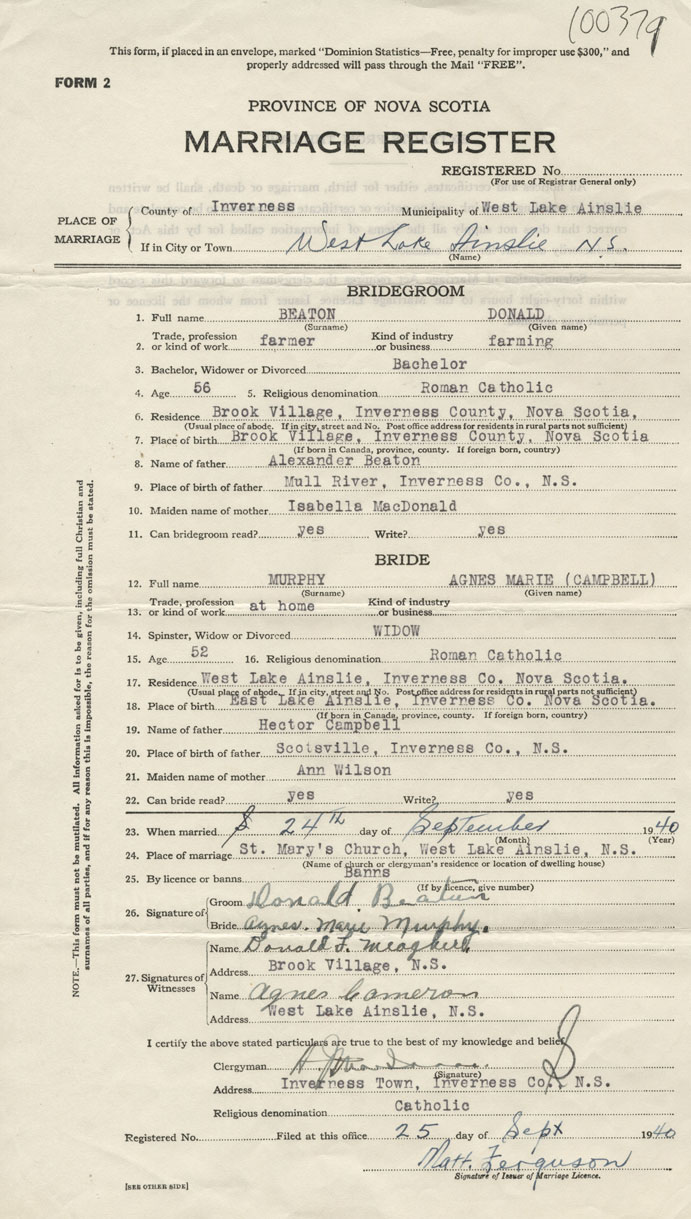 100379
This form, if placed in an envelope, marked "Dominion Statistics—Free, penalty for improper use $300," and
properly addressed will pass through the Mail "FREE".
FORM 2
PROVINCE OF NOVA SCOTIA
MARRIAGE REGISTER
REGISTERED No.
(For use of Registrar General only)
PLACE OF MARRIAGE
County of Inverness Municipality of West Lake Ainslie
If in City or Town West Lake Ainslie N.S.
(Name)
BRIDEGROOM
1. Full name BEATON DONALD
(Surname) (Given name)
2. Trade, profession or kind of work farmer Kind of industry or business farming
3. Bachelor, Widower or Divorced Bachelor
4. Age 56 5. Religious denomination Roman Catholic
6. Residence Brook Village, Inverness County, Nova Scotia,
(Usual place of abode. If in city, street and No. Post office address for residents in rural parts not sufficient)
7. Place of birth Brook Village, Inverness County, Nova Scotia
(If born in Canada, province, county. If foreign born, country)
8. Name of father Alexander Beaton
9. Place of birth of father Mull River, Inverness Co., N.S.
10. Maiden name of mother Isabella MacDonald
11. Can bridegroom read? yes Write? yes
BRIDE
12. Full name MURPHY AGNES MARIE (CAMPBELL)
(Surname) (Given name)
13. Trade, profession or kind of work at home Kind of industry or business
14. Spinster, Widow or Divorced WIDOW
15. Age 52 16. Religious denomination Roman Catholic
17. Residence West Lake Ainslie, Inverness Co. Nova Scotia.
(Usual place of abode. If in city, street and No. Post office address for residents in rural parts not sufficient)
18. Place of birth East Lake Ainslie, Inverness Co. Nova Scotia.
(If born in Canada, province, county. If foreign born, country)
19. Name of father Hector Campbell
20. Place of birth of father Scotsville, Inverness Co., N.S.
21. Maiden name of mother Ann Wilson
22. Can bride read? yes Write? yes
23. When married 24TH day of September 1940
(Month) (Year)
24. Place of marriage St. Mary's Church, West Lake Ainslie, N.S.
(Name of church or clergyman's residence or location of dwelling house)
25. By licence or banns Banns
(If by licence, give number)
26. Signature of
Groom Donald Beaton
Bride Agnes. Marie Murphy.
27. Signatures of Witnesses
Name Donald F. Meagher
Address Brook Village, N.S.
Name Agnes Cameron
Address West Lake Ainslie, N.S.
I certify the above stated particulars are true to the best of my knowledge and belief.
Clergyman
(Signature)
Address Inverness Town, Inverness Co., N.S.
Religious denomination Catholic
Registered No. Filed at this office 25 day of Sept 1940
Matt. Ferguson
Signature of Issuer of Marriage Licence.
[SEE OTHER SIDE]
NOTE.—This form must not be mutilated. All information asked for is to be given, including full Christian and
surnames of all parties, and if for any reason this is impossible, the reason for the omission must be stated.